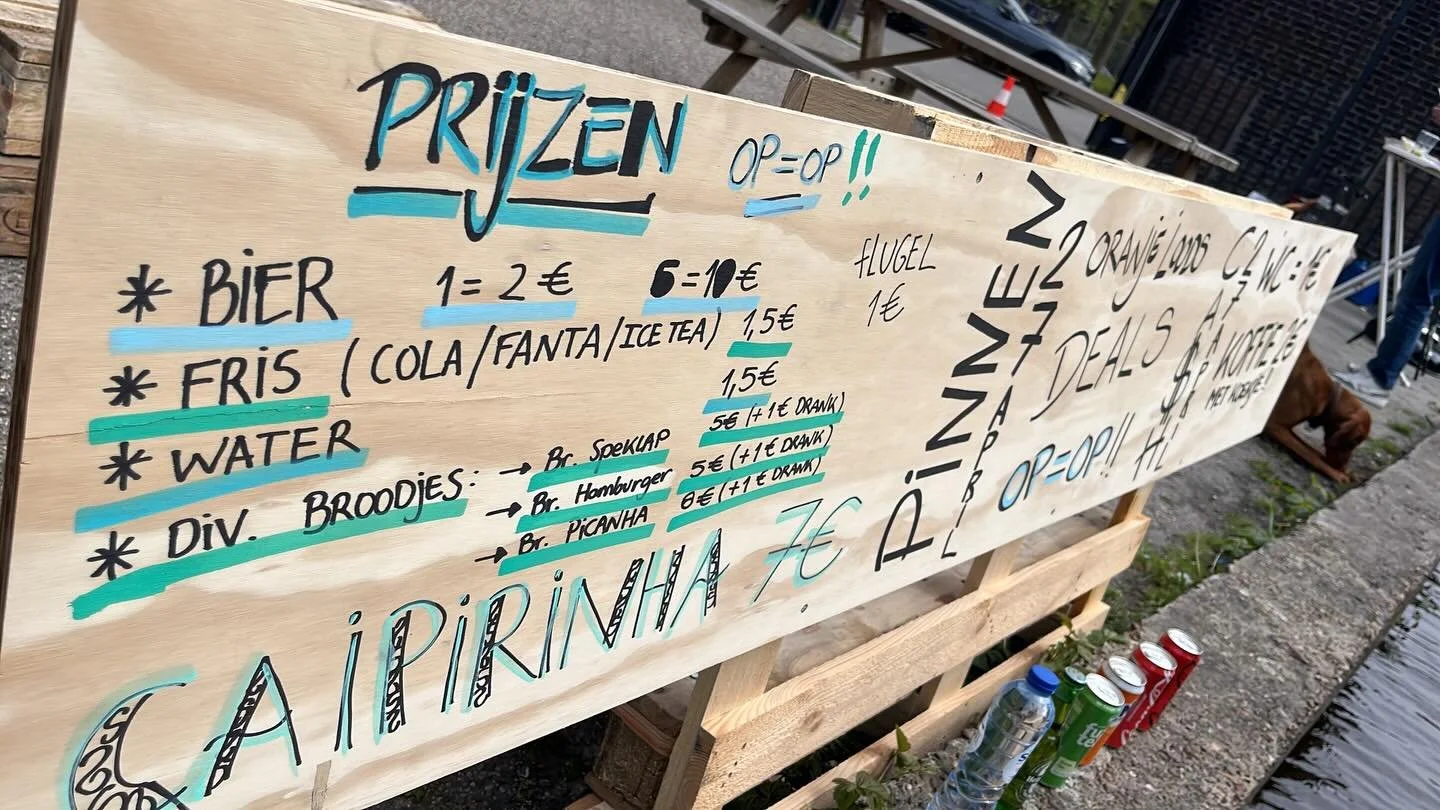 PRIJZEN OP=OP!!
* BIER 1= 2 € 6=10€
* FRIS (COLA/FANTA/ICE TEA) 1,5€
* WATER 1,5€
* DIV. BROODJES: → Br. SPEKLAP 5€ (+1€ DRANK)
→ Br. Hamburger 5€ (+1€ DRANK)
→ Br. PICANHA 8€ (+1€ DRANK)
CAIPIRINHA 7€
FLUGEL
1€
PINNEN
ORANJE
DEALS
OP=OP!!
WC = 1€
KOFFIE 2€
MET KOEKJE!